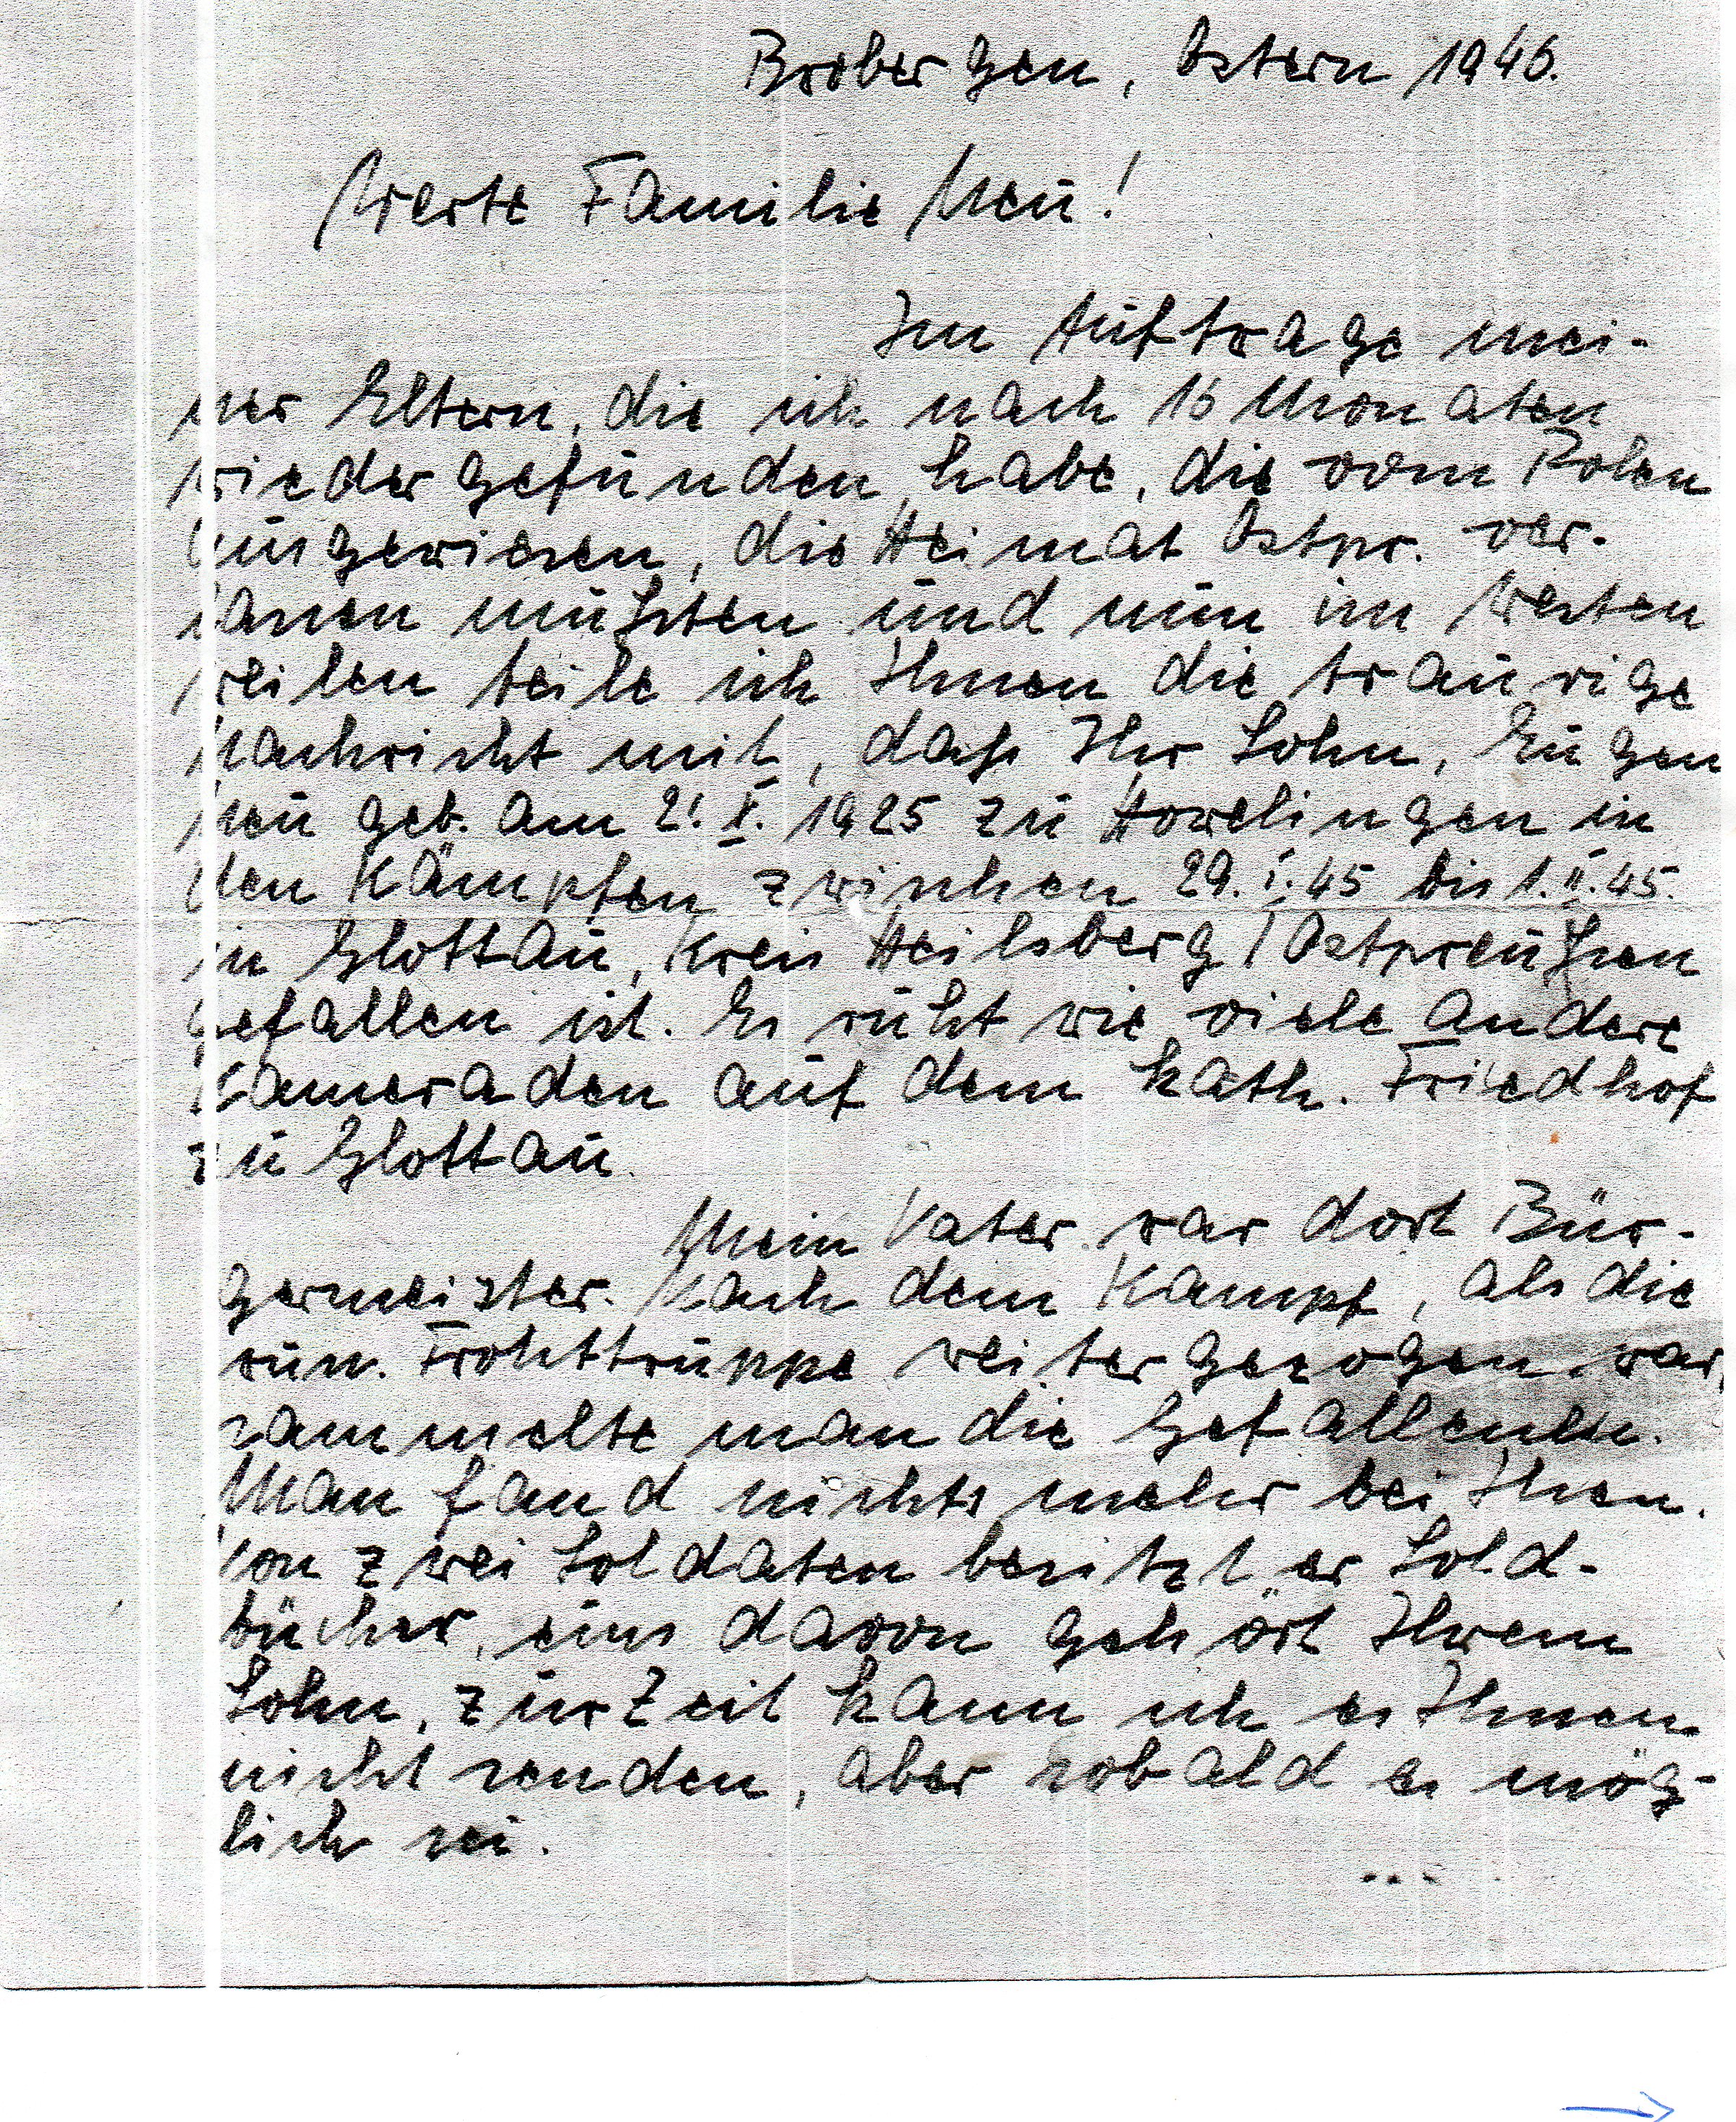 Brobergen, Ostern 1946.
Werte Familie Neu!
Im Auftrage mei-
ner Eltern, die ich nach 16 Monaten
wiedergefunden habe, die vom Polen
ausgewiesen, die Heimat Ostpr. ver-
lassen mußten und nun im Westen
weilen teile ich Ihnen die traurige
Nachricht mit, daß Ihr Sohn, Eugen
Neu geb. am 2. X. 1925 zu in
den Kämpfen zwischen 29. I. 45 bis 1. II. 45.
in Glottau, Kreis Heilsberg / Ostpreußen
gefallen ist. Er ruht wie viele andere
Kameraden auf dem kath. Friedhof
zu Glottau.
Mein Vater war dort Bür-
germeister. Nach dem Kampf, als die
rus. Frohttruppe weitergezogen war,
sammelte man die Gefallenen.
Man fand nichts mehr bei Ihen.
Von zwei Soldaten besitzt er Sold-
bücher, eins davon gehört Ihrem
Sohn, zur Zeit kann ich es Ihnen
nicht senden, aber sobald es mög-
lich sei.
...